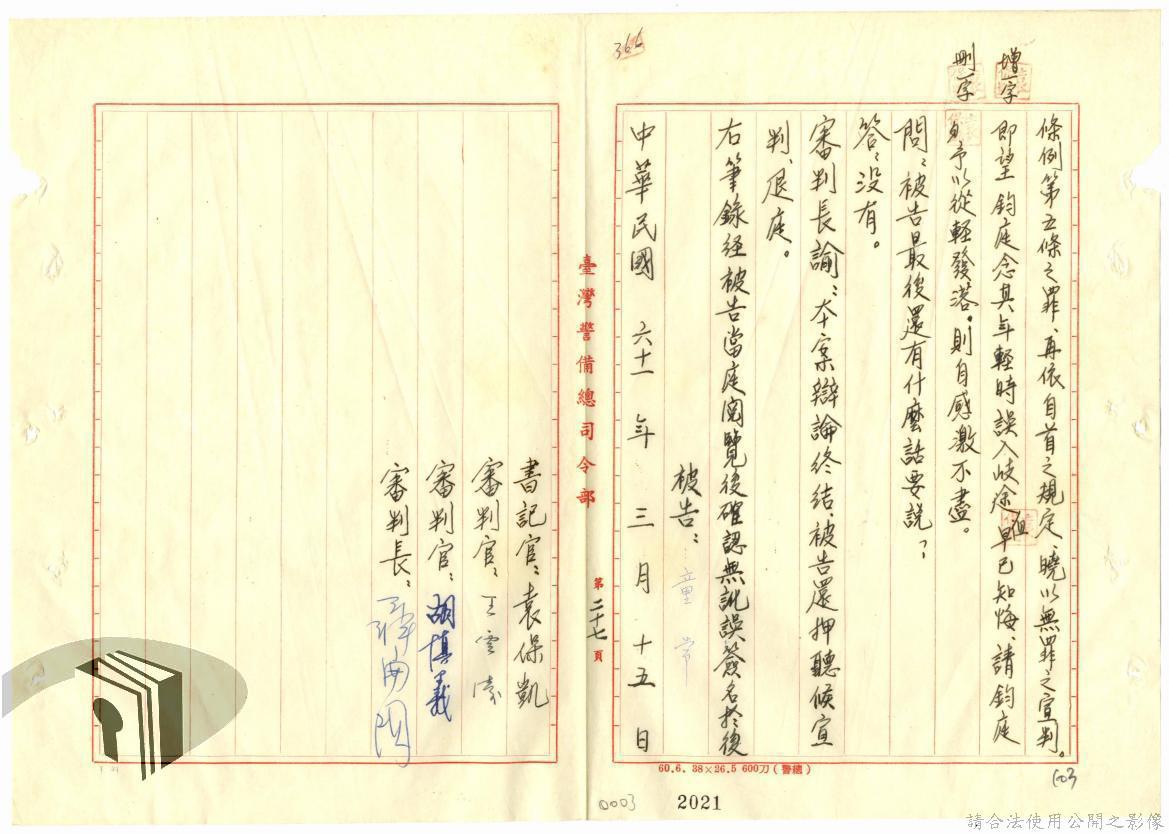 366
增一字
刪一字
條例第五條之罪、再依自首之規定、曉以無罪之宣判。
即望 鈞庭念其年輕時誤入歧途但早已知悔、請鈞庭
予以從輕發落。則自感激不盡。
問：被告最後還有什麼話要說？
答：沒有。
審判長諭：本案辯論終結、被告還押聽候宣
判、退庭。
右筆錄經被告當庭閱覽後確認無訛誤簽名於後
被告：童常
中華民國 六十一 年 三 月 十五 日
臺灣警備總司令部
第二十七頁
書記官：袁保凱
審判官：王雲濤
審判官：胡慎義
審判長：
60.6. 38×26.5 600刀(警總)
103
0003
2021
請合法使用公開之影像